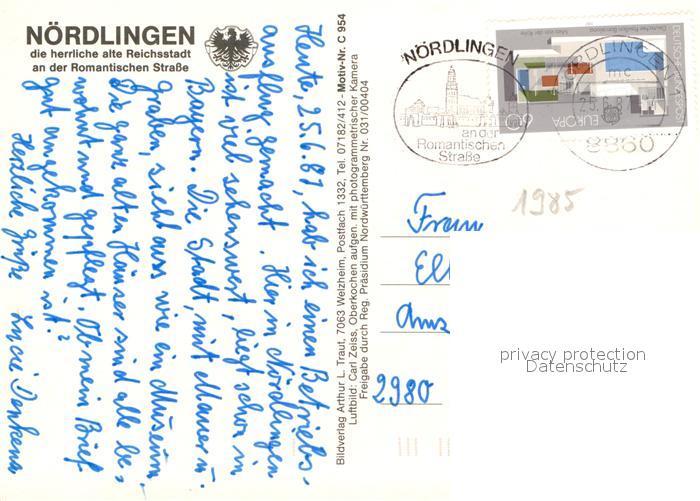 NÖRDLINGEN
die herrliche alte Reichsstadt
an der Romantischen Straße
Heute, 25.6.87, hab ich einen Betriebs-
ausflug gemacht. Hier in Nördlingen
ist viel sehenswert, liegt schon in
Bayern. Die Stadt, mit Mauer u.
Graben, sieht aus wie ein Museum.
Die ganz alten Häuser sind alle be-
wohnt und gepflegt. Ob mein Brief
gut angekommen ist?
Herzliche Grüße
Bildverlag Arthur L. Traut, 7063 Welzheim, Postfach 1332, Tel. 07182/412 - Motiv-Nr. C 954
Luftbild: Carl Zeiss, Oberkochen aufgen. mit photogrammetrischer Kamera
Freigabe durch Reg. Präsidium Nordwürttemberg Nr. 031/00404
NÖRDLINGEN
an der
Romantischen
Straße
NÖRDLINGEN
mc
8860
DEUTSCHE BUNDESPOST
EUROPA
60
1985
Frau
El
Ams
2980
privacy protection
Datenschutz